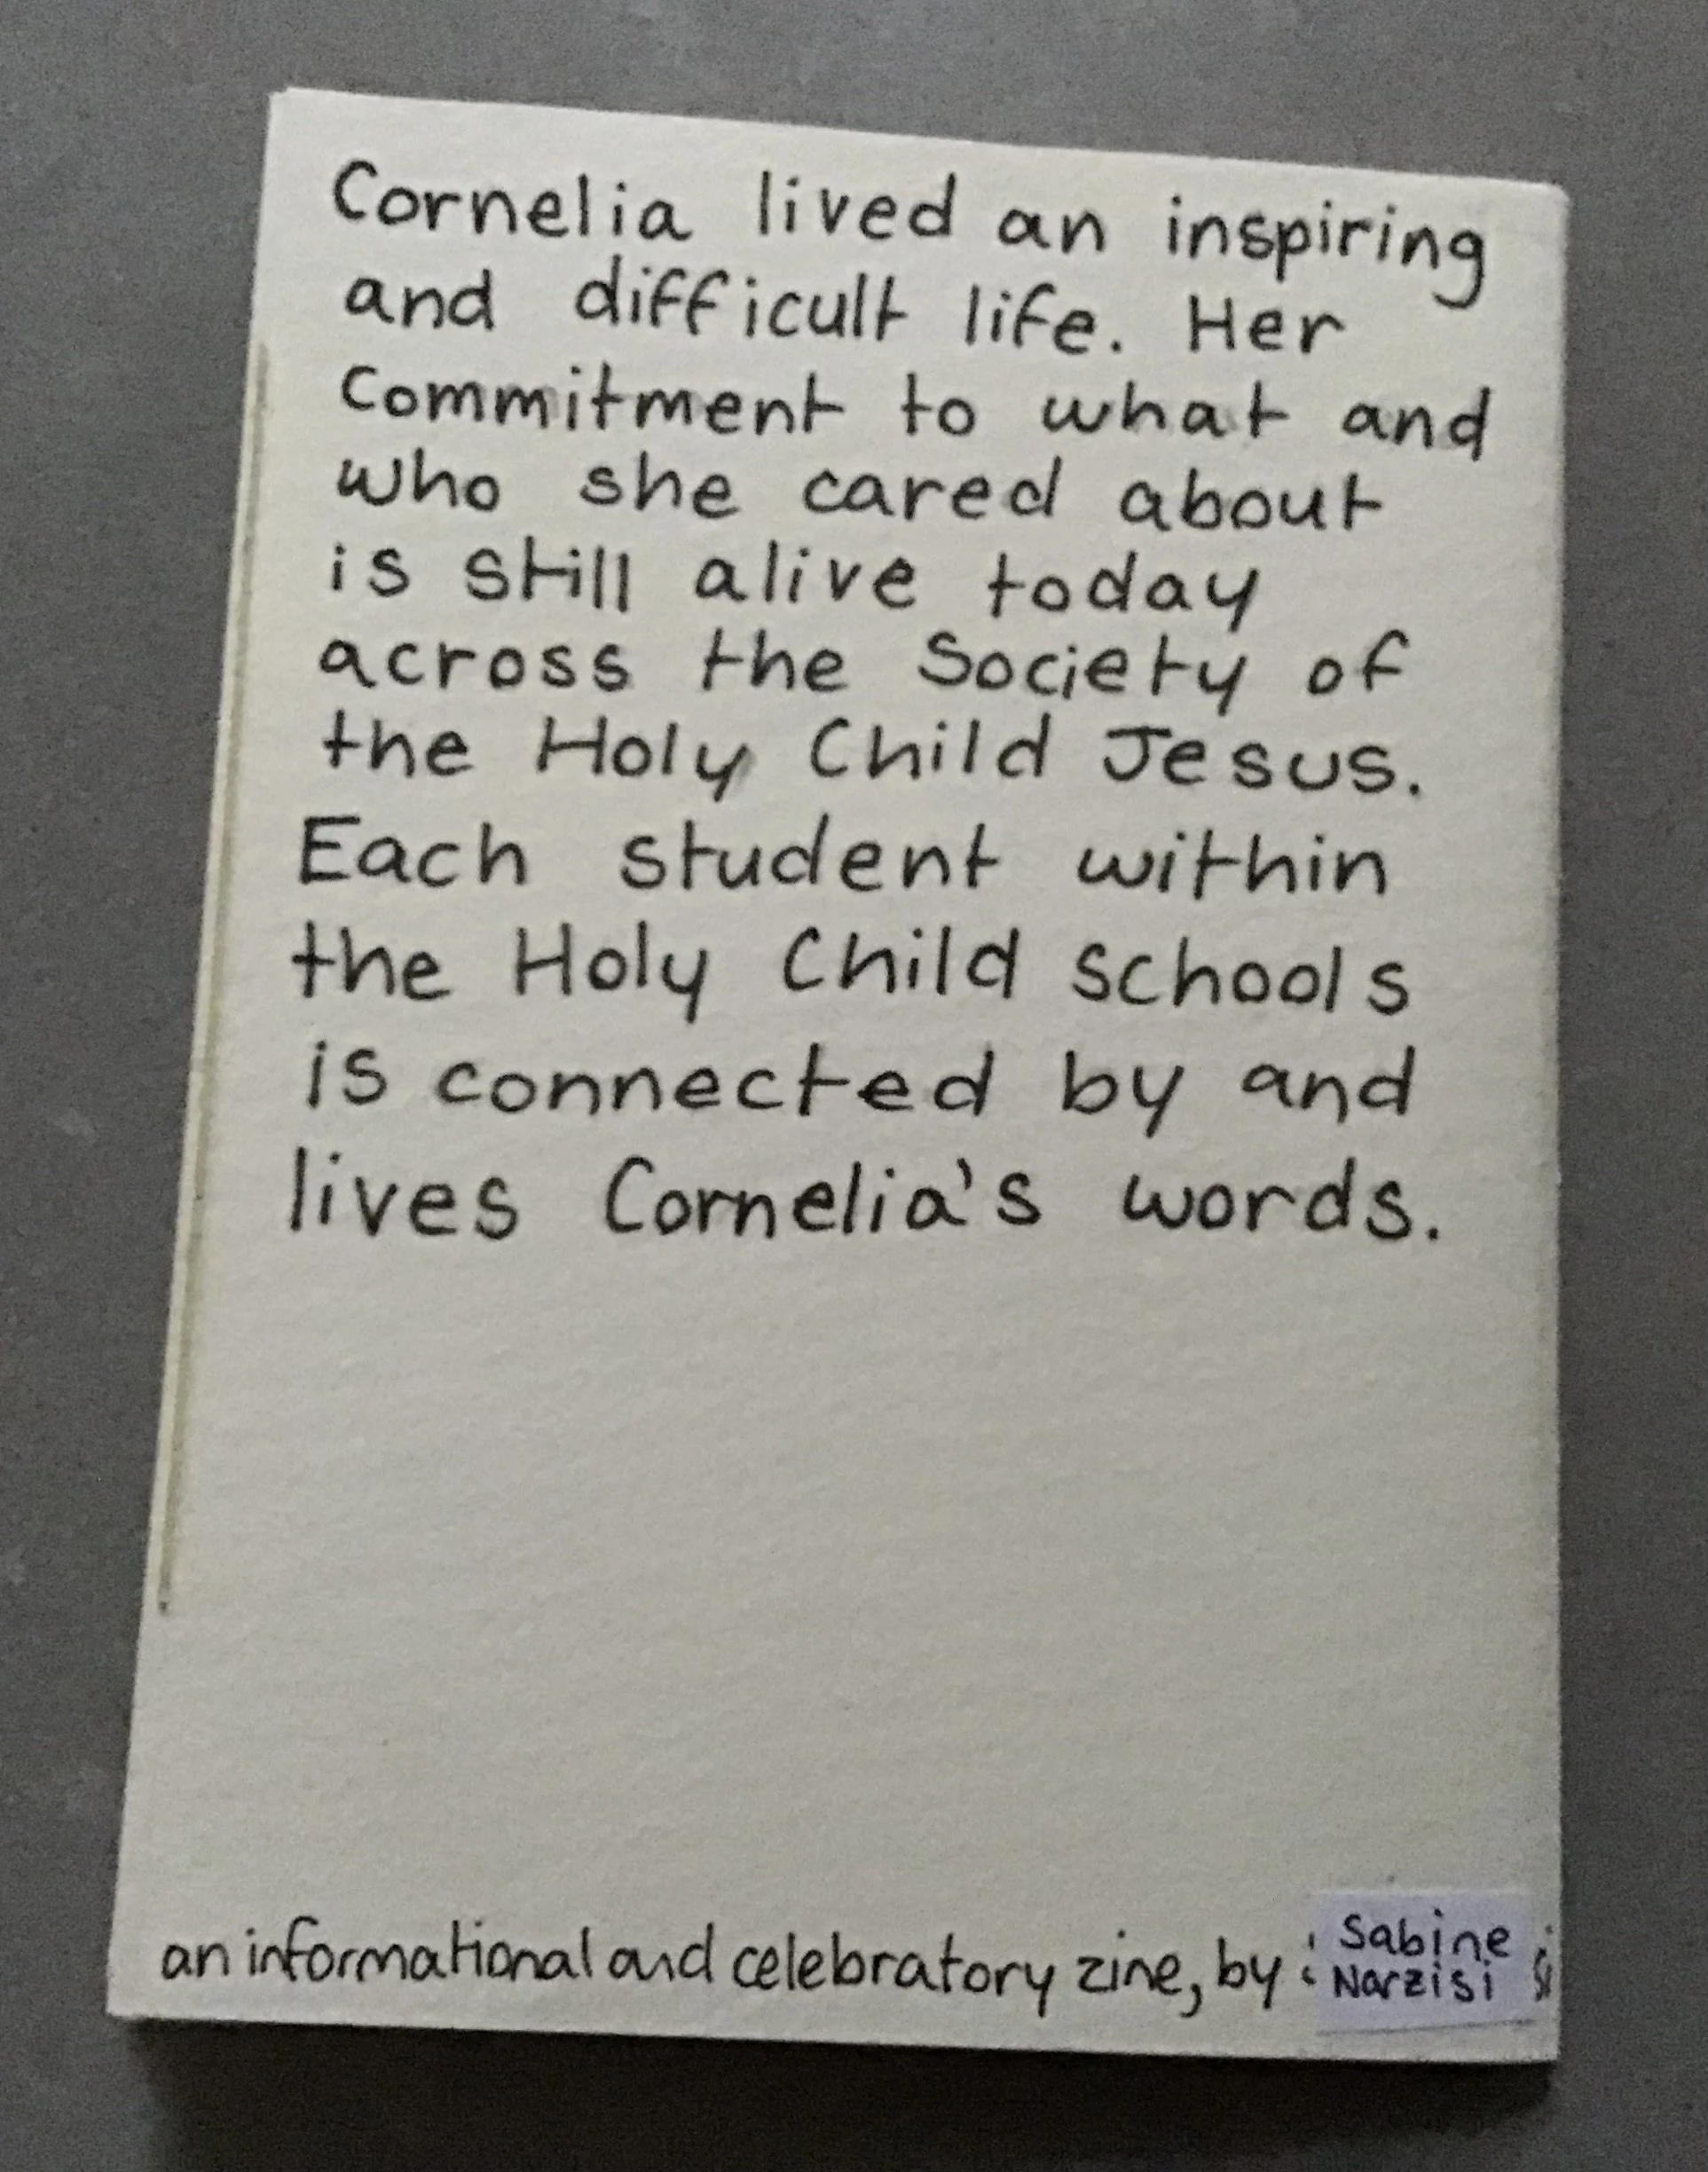 Cornelia lived an inspiring
and difficult life. Her
commitment to what and
who she cared about
is still alive today
across the Society of
the Holy Child Jesus.
Each student within
the Holy Child schools
is connected by and
lives Cornelia's words.
an informational and celebratory zine, by Sabine
Narzisi